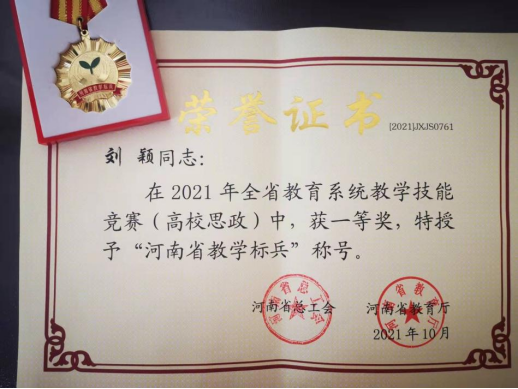 荣誉证书
[2021]JXJS0761
刘 颖同志：
在 2021 年全省教育系统教学技能
竞赛（高校思政）中，获一等奖，特授
予“河南省教学标兵”称号。
河南省总工会 河南省教育厅
2021 年 10 月
河南省总工会
河南省教育厅